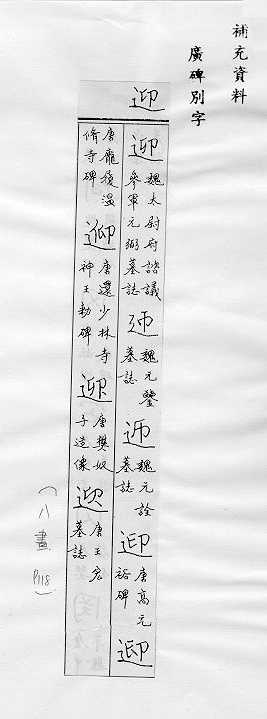 補充資料
廣碑別字
迎
迎
魏太尉府諮議
參軍元弼墓誌
魏元鑒
墓誌
魏元詮
墓誌
迎
唐高元
裕碑
唐龐復溫
脩寺碑
唐還少林寺
神王勑碑
迎
唐樊奴
子造像
唐王宏
墓誌
(八畫 P118)